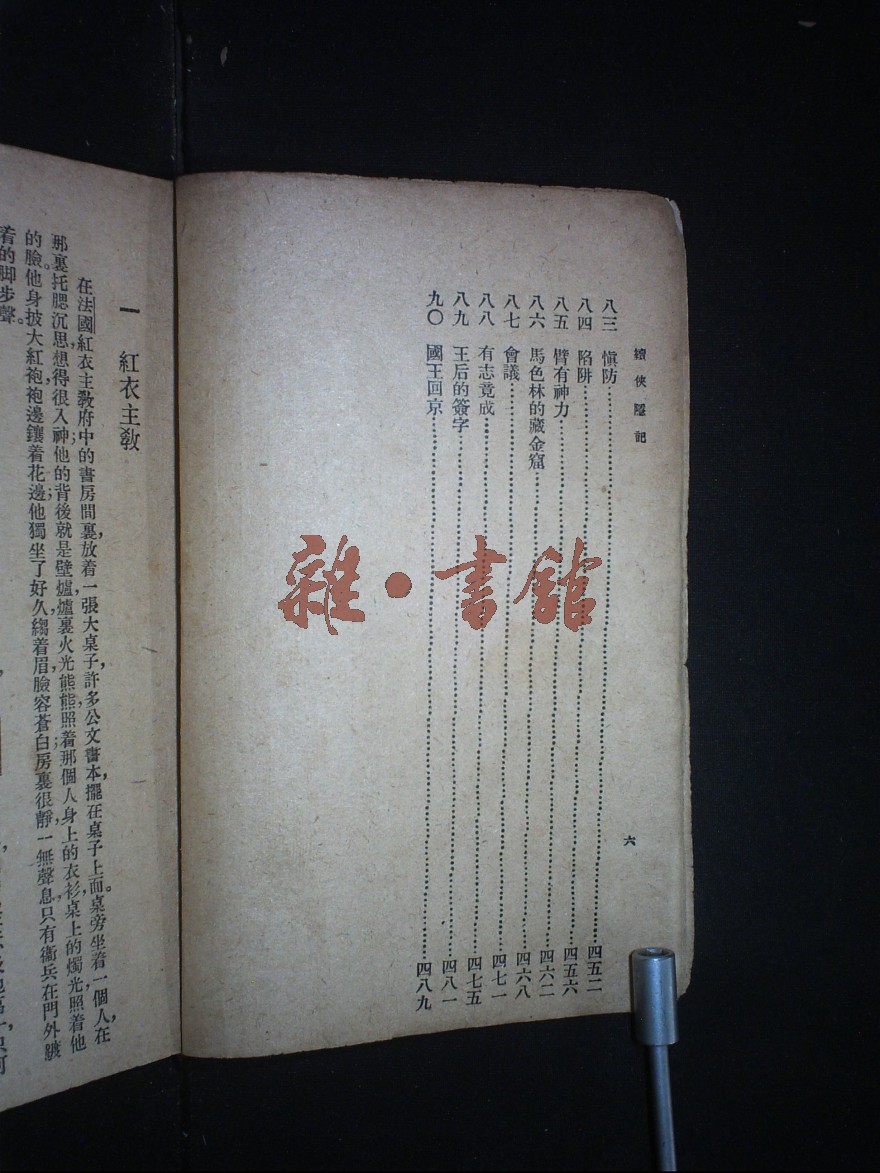 續俠隱記
六
八三 愼防……四五二
八四 陷阱……四五六
八五 臂有神力……四六二
八六 馬色林的藏金窟……四六八
八七 會議……四七一
八八 有志竟成……四七五
八九 王后的簽字……四八一
九〇 國王回京……四八九
雜·書館
一 紅衣主教
在法國紅衣主教府中的書房間裏,放着一張大桌子,許多公文書本,擺在桌子上面。桌旁坐着一個人,在
那裏托腮沉思,想得很入神;他的背後就是壁爐,爐裏火光熊熊,照着那個人身上的衣衫,桌上的燭光,照着他
的臉。他身披大紅袍,袍邊鑲着花邊;他獨坐了好久,縐着眉,臉容蒼白;房裏很靜,一無聲息,只有衛兵在門外
着的脚步聲。